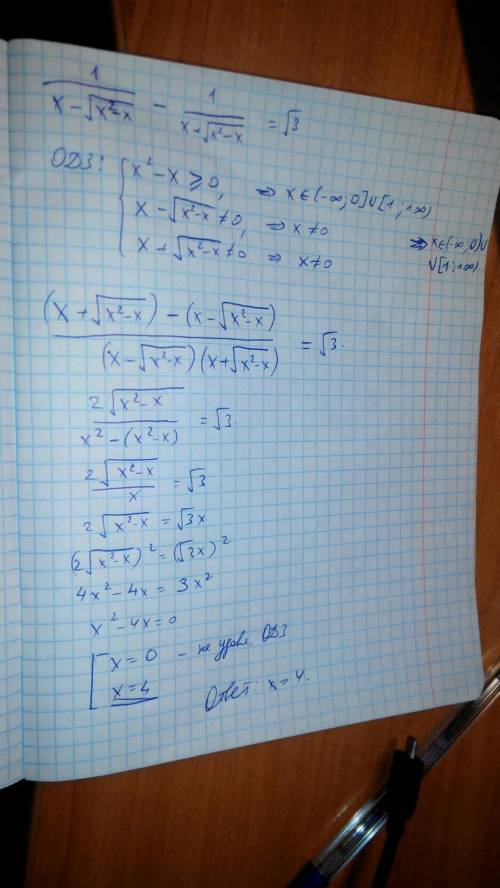 1/(x-√(x²-x)) - 1/(x+√(x²-x)) = √3
ОДЗ: { x²-x ≥ 0, ⇒ x∈(-∞;0]∪[1;+∞)
x-√(x²-x) ≠ 0, ⇒ x≠0 ⇒ x∈(-∞;0)∪
x+√(x²-x) ≠ 0 ⇒ x≠0 ∪[1;+∞)
((x+√(x²-x)) - (x-√(x²-x)))/((x-√(x²-x))(x+√(x²-x))) = √3.
2√(x²-x)/(x²-(x²-x)) = √3.
2√(x²-x)/x = √3
2√(x²-x) = √3x
(2√(x²-x))² = (√3x)²
4x²-4x = 3x²
x²-4x=0
[ x=0 - не удовл. ОДЗ
x=4 Ответ: x=4.